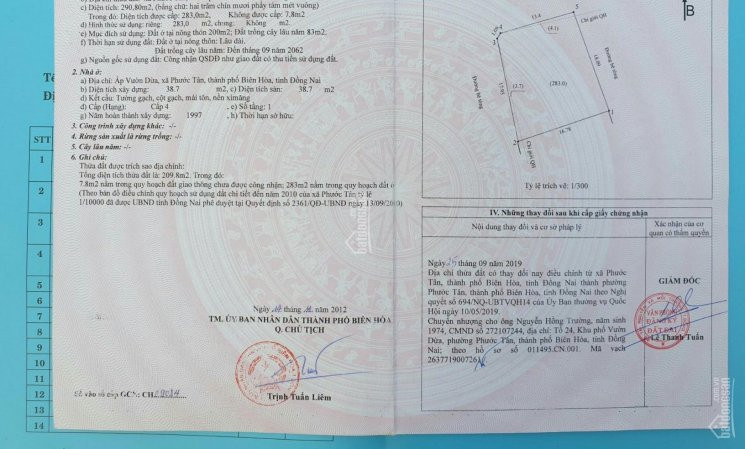 c) Diện tích: 290,80m2, (bằng chữ: hai trăm chín mươi phẩy tám mét vuông)
Trong đó: Diện tích được cấp: 283,0m2, Không được cấp: 7,8m2
d) Hình thức sử dụng: riêng: 283,0 m2, chung: Không m2.
e) Mục đích sử dụng: Đất ở tại nông thôn 200m2; Đất trồng cây lâu năm 83m2.
f) Thời hạn sử dụng: Đất ở tại nông thôn: Lâu dài.
Đất trồng cây lâu năm: Đến tháng 09 năm 2062
g) Nguồn gốc sử dụng đất: Công nhận QSDĐ như giao đất có thu tiền sử dụng đất.
2. Nhà ở:
a) Địa chỉ: Ấp Vườn Dừa, xã Phước Tân, thành phố Biên Hòa, tỉnh Đồng Nai
b) Diện tích xây dựng: 38.7 m2, c) Diện tích sàn: 38.7 m2
d) Kết cấu: Tường gạch, cột gạch, mái tôn, nền ximăng
đ) Cấp (Hạng): Cấp 4 , e) Số tầng: 1
g) Năm hoàn thành xây dựng: 1997 , h) Thời hạn sở hữu:
3. Công trình xây dựng khác: -/-
4. Rừng sản xuất là rừng trồng: -/-
5. Cây lâu năm: -/-
6. Ghi chú:
Thửa đất được trích sao địa chính:
Tổng diện tích thửa đất là: 209.8m2. Trong đó:
7.8m2 nằm trong quy hoạch đất giao thông chưa được công nhận; 283m2 nằm trong quy hoạch đất ở
(Theo bản đồ điều chỉnh quy hoạch sử dụng đất chi tiết đến năm 2010 của xã Phước Tân tỷ lệ
1/10000 đã được UBND tỉnh Đồng Nai phê duyệt tại Quyết định số 2361/QĐ-UBND ngày 13/09/200)
năm 2012
TM. ỦY BAN NHÂN DÂN THÀNH PHỐ BIÊN HÒA
Q. CHỦ TỊCH
Trịnh Tuấn Liêm
Số vào sổ cấp GCN: CH
STT
1
2
3
4
5
6
7
8
9
10
11
12
13
14
B
13.4
5
(4.1)
Chỉ giới QH
Đường bê tông
(3.7)
(283.0)
2
16.78
Chỉ giới QH
Tỷ lệ trích vẽ: 1/300
IV. Những thay đổi sau khi cấp giấy chứng nhận
Nội dung thay đổi và cơ sở pháp lý
Xác nhận của cơ quan có thẩm quyền
Ngày 25 tháng 09 năm 2019
Địa chỉ thửa đất có thay đổi nay điều chỉnh từ xã Phước
Tân, thành phố Biên Hòa, tỉnh Đồng Nai thành phường
Phước Tân, thành phố Biên Hòa, tỉnh Đồng Nai theo Nghị
quyết số 694/NQ-UBTVQH14 của Ủy Ban thường vụ Quốc
Hội ngày 10/05/2019.
Chuyển nhượng cho ông Nguyễn Hồng Trường, năm sinh
1974, CMND số 272107244, địa chỉ: Tổ 24, Khu phố Vườn
Dừa, phường Phước Tân, thành phố Biên Hòa, tỉnh Đồng
Nai; theo hồ sơ số 011495.CN.001. Mã vạch
263771900726
GIÁM ĐỐC
VĂN PHÒNG
ĐĂNG KÝ
ĐẤT ĐAI
Lê Thanh Tuấn
batdongsan